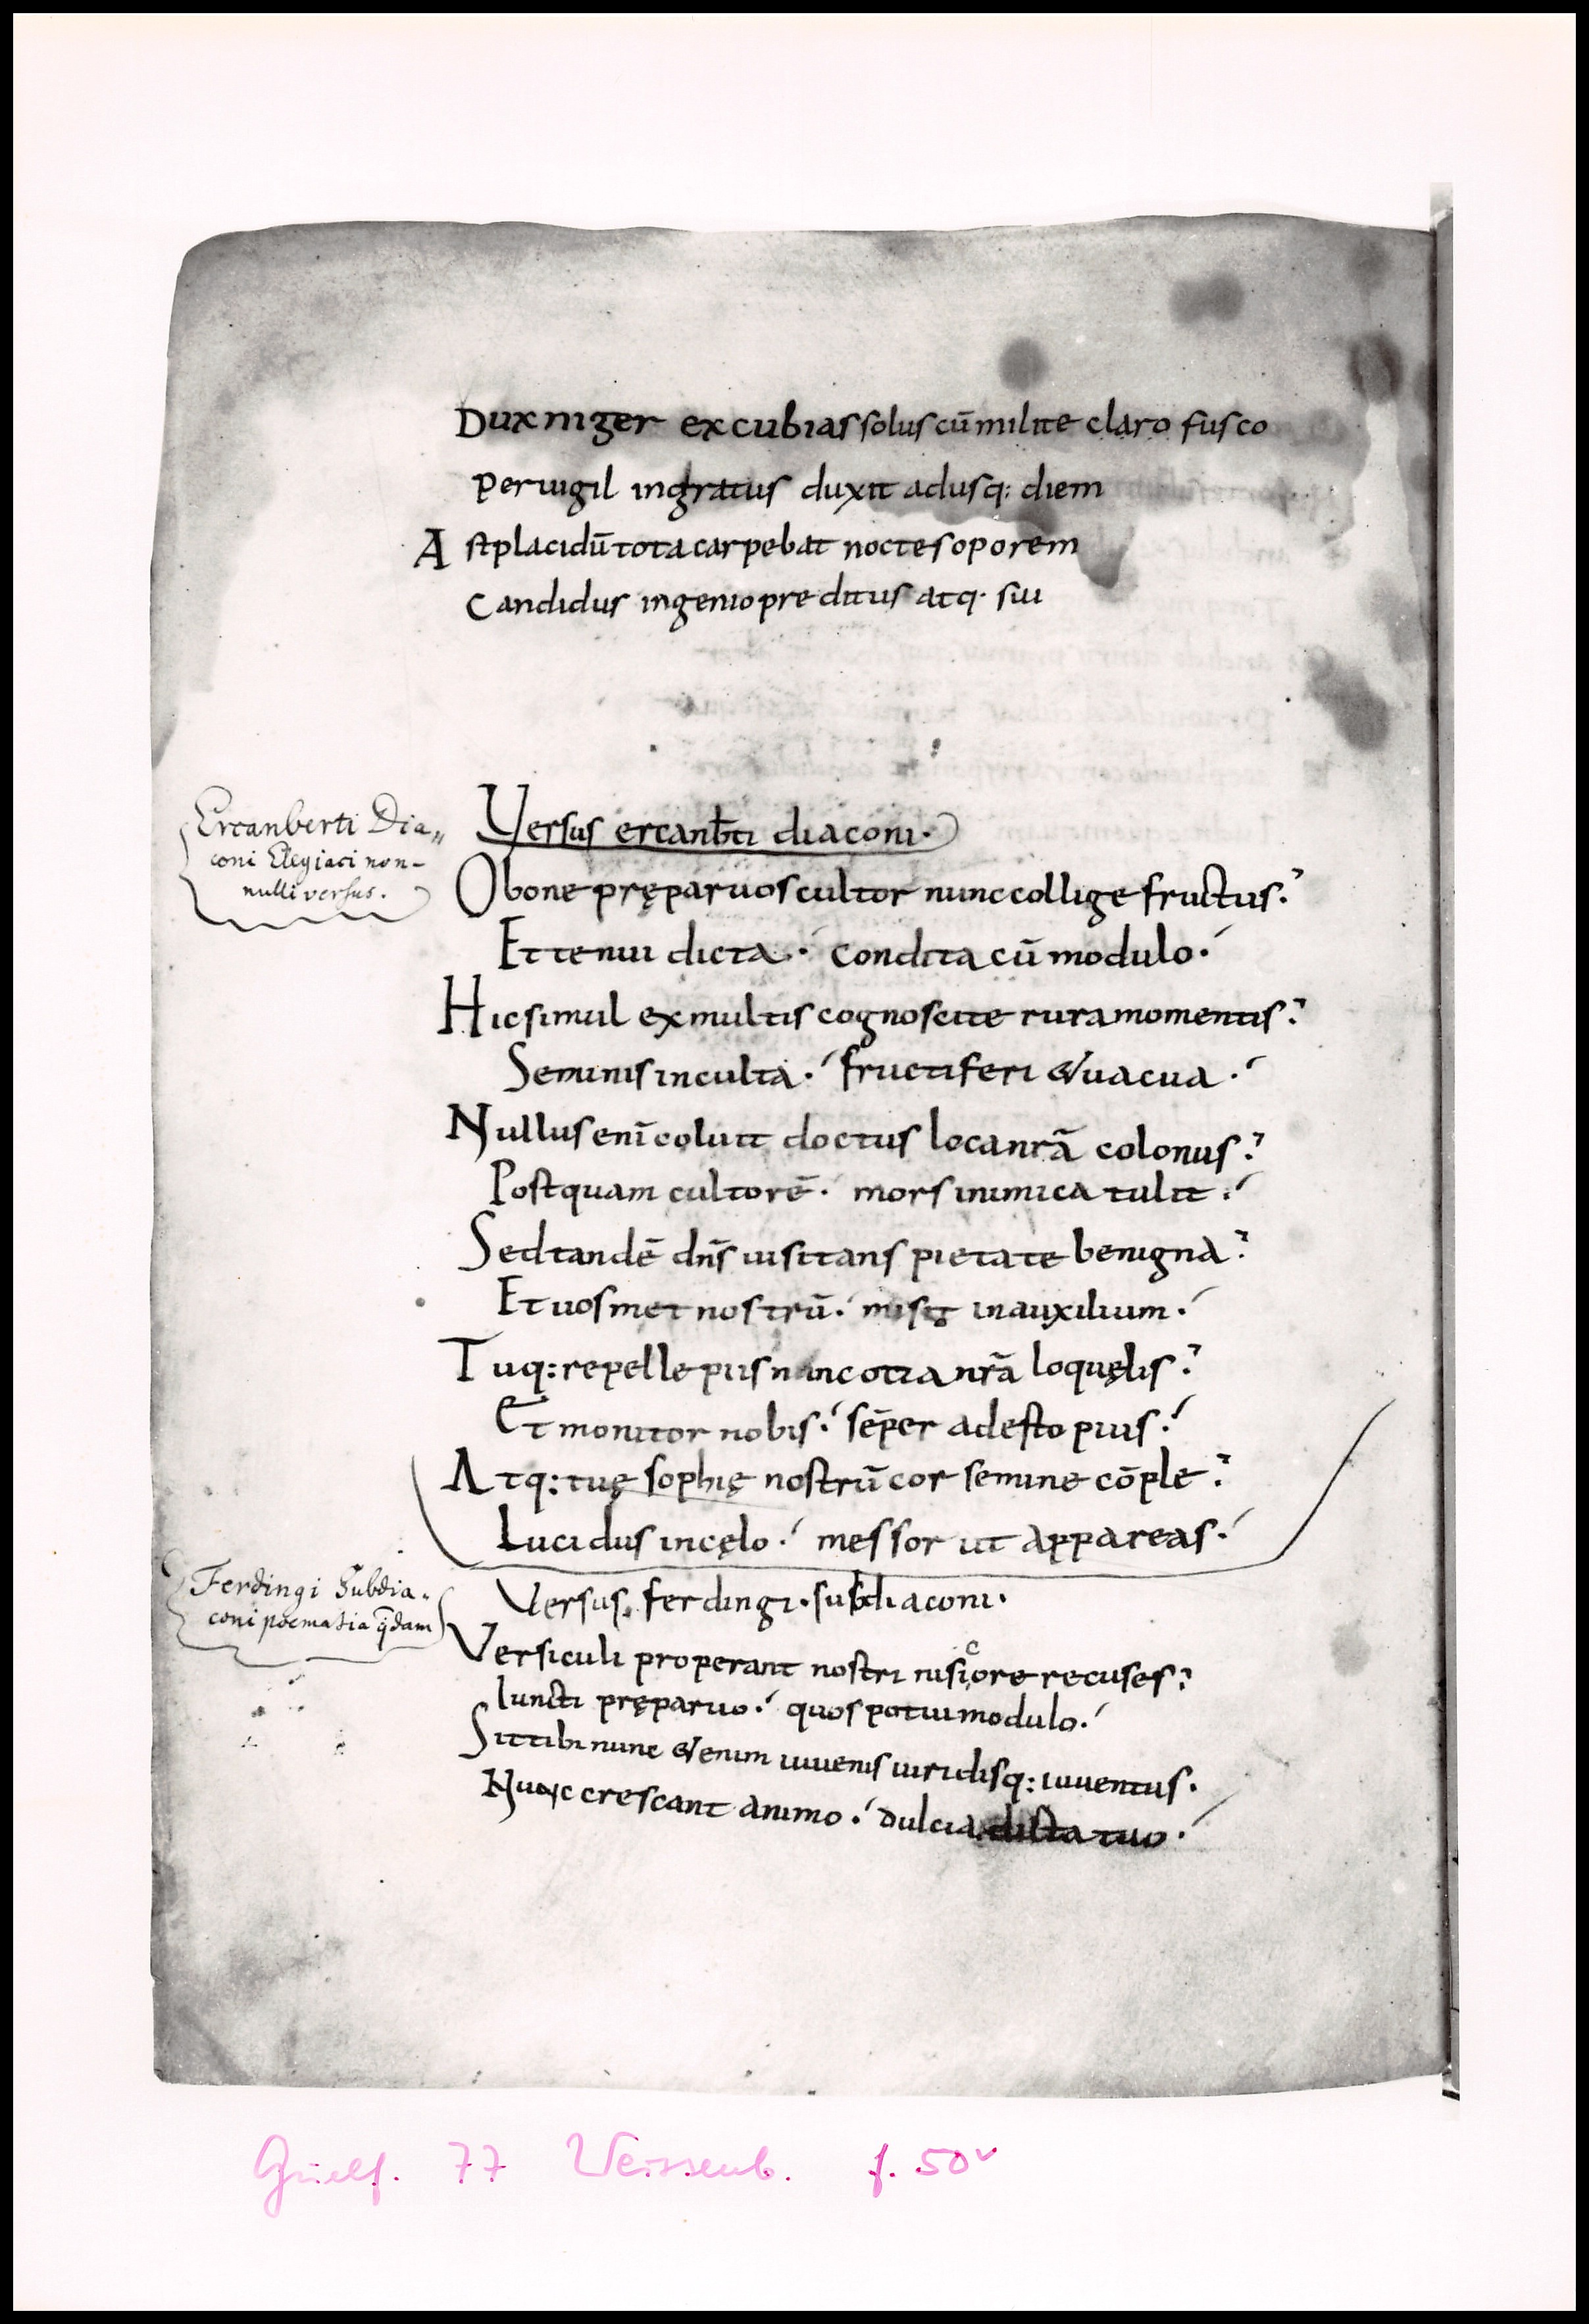 Dux niger excubias solus cū milite claro fusco
peruigil ingratus duxit adusq; diem
A st placidū tota carpebat nocte soporem
Candidus ingenio preditus atq· sui
Ercanberti Dia„
coni Elegiaci non-
nulli versus.
Versus ercanb̄ti diaconi·
O bone pręparuos cultor nunc collige fructus·
Et tenui dicta· condita cū modulo·
Hic simul ex multis cognoscite rura momentis·
Seminis inculta· fructiferi & uacua·
Nullus enī coluit doctus loca nr̄a colonus·
Postquam cultorē· mors inimica tulit·
Sed tandē dn̄s uisitans pietate benigna·
Et uosmet nostrū· misit in auxilium·
Tuq: repelle piis nunc otia nr̄a loquęlis·
Et monitor nobis· sēper adesto pius·
Atq: tuę sophię nostrū cor semine cōple·
Lucidus in cęlo· messor ut appareas·
Ferdingi Subdia-
coni poematia q̄dam
Versus. ferdingi· subdiaconi·
Versiculi properant nostri nisi core recuses·
Iuncti pręparuo· quos potui modulo·
Sit tibi nunc & enim iuuenis uiridisq: iuuentus·
Nunc crescant animo· dulcia dicta tuo·
Guelf. 77 Weissenb. f. 50v